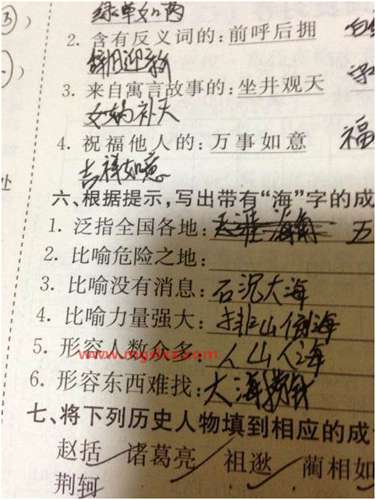 2. 含有反义词的:前呼后拥
辞旧迎新
3. 来自寓言故事的:坐井观天
女娲补天
4. 祝福他人的:万事如意 福
吉祥如意
六、根据提示,写出带有“海”字的成
1. 泛指全国各地:天涯海角 五
2. 比喻危险之地:
3. 比喻没有消息:石沉大海
4. 比喻力量强大:排山倒海
5. 形容人数众多:人山人海
6. 形容东西难找:大海捞针
七、将下列历史人物填到相应的成
赵括 诸葛亮 祖逖 蔺相如
荆轲